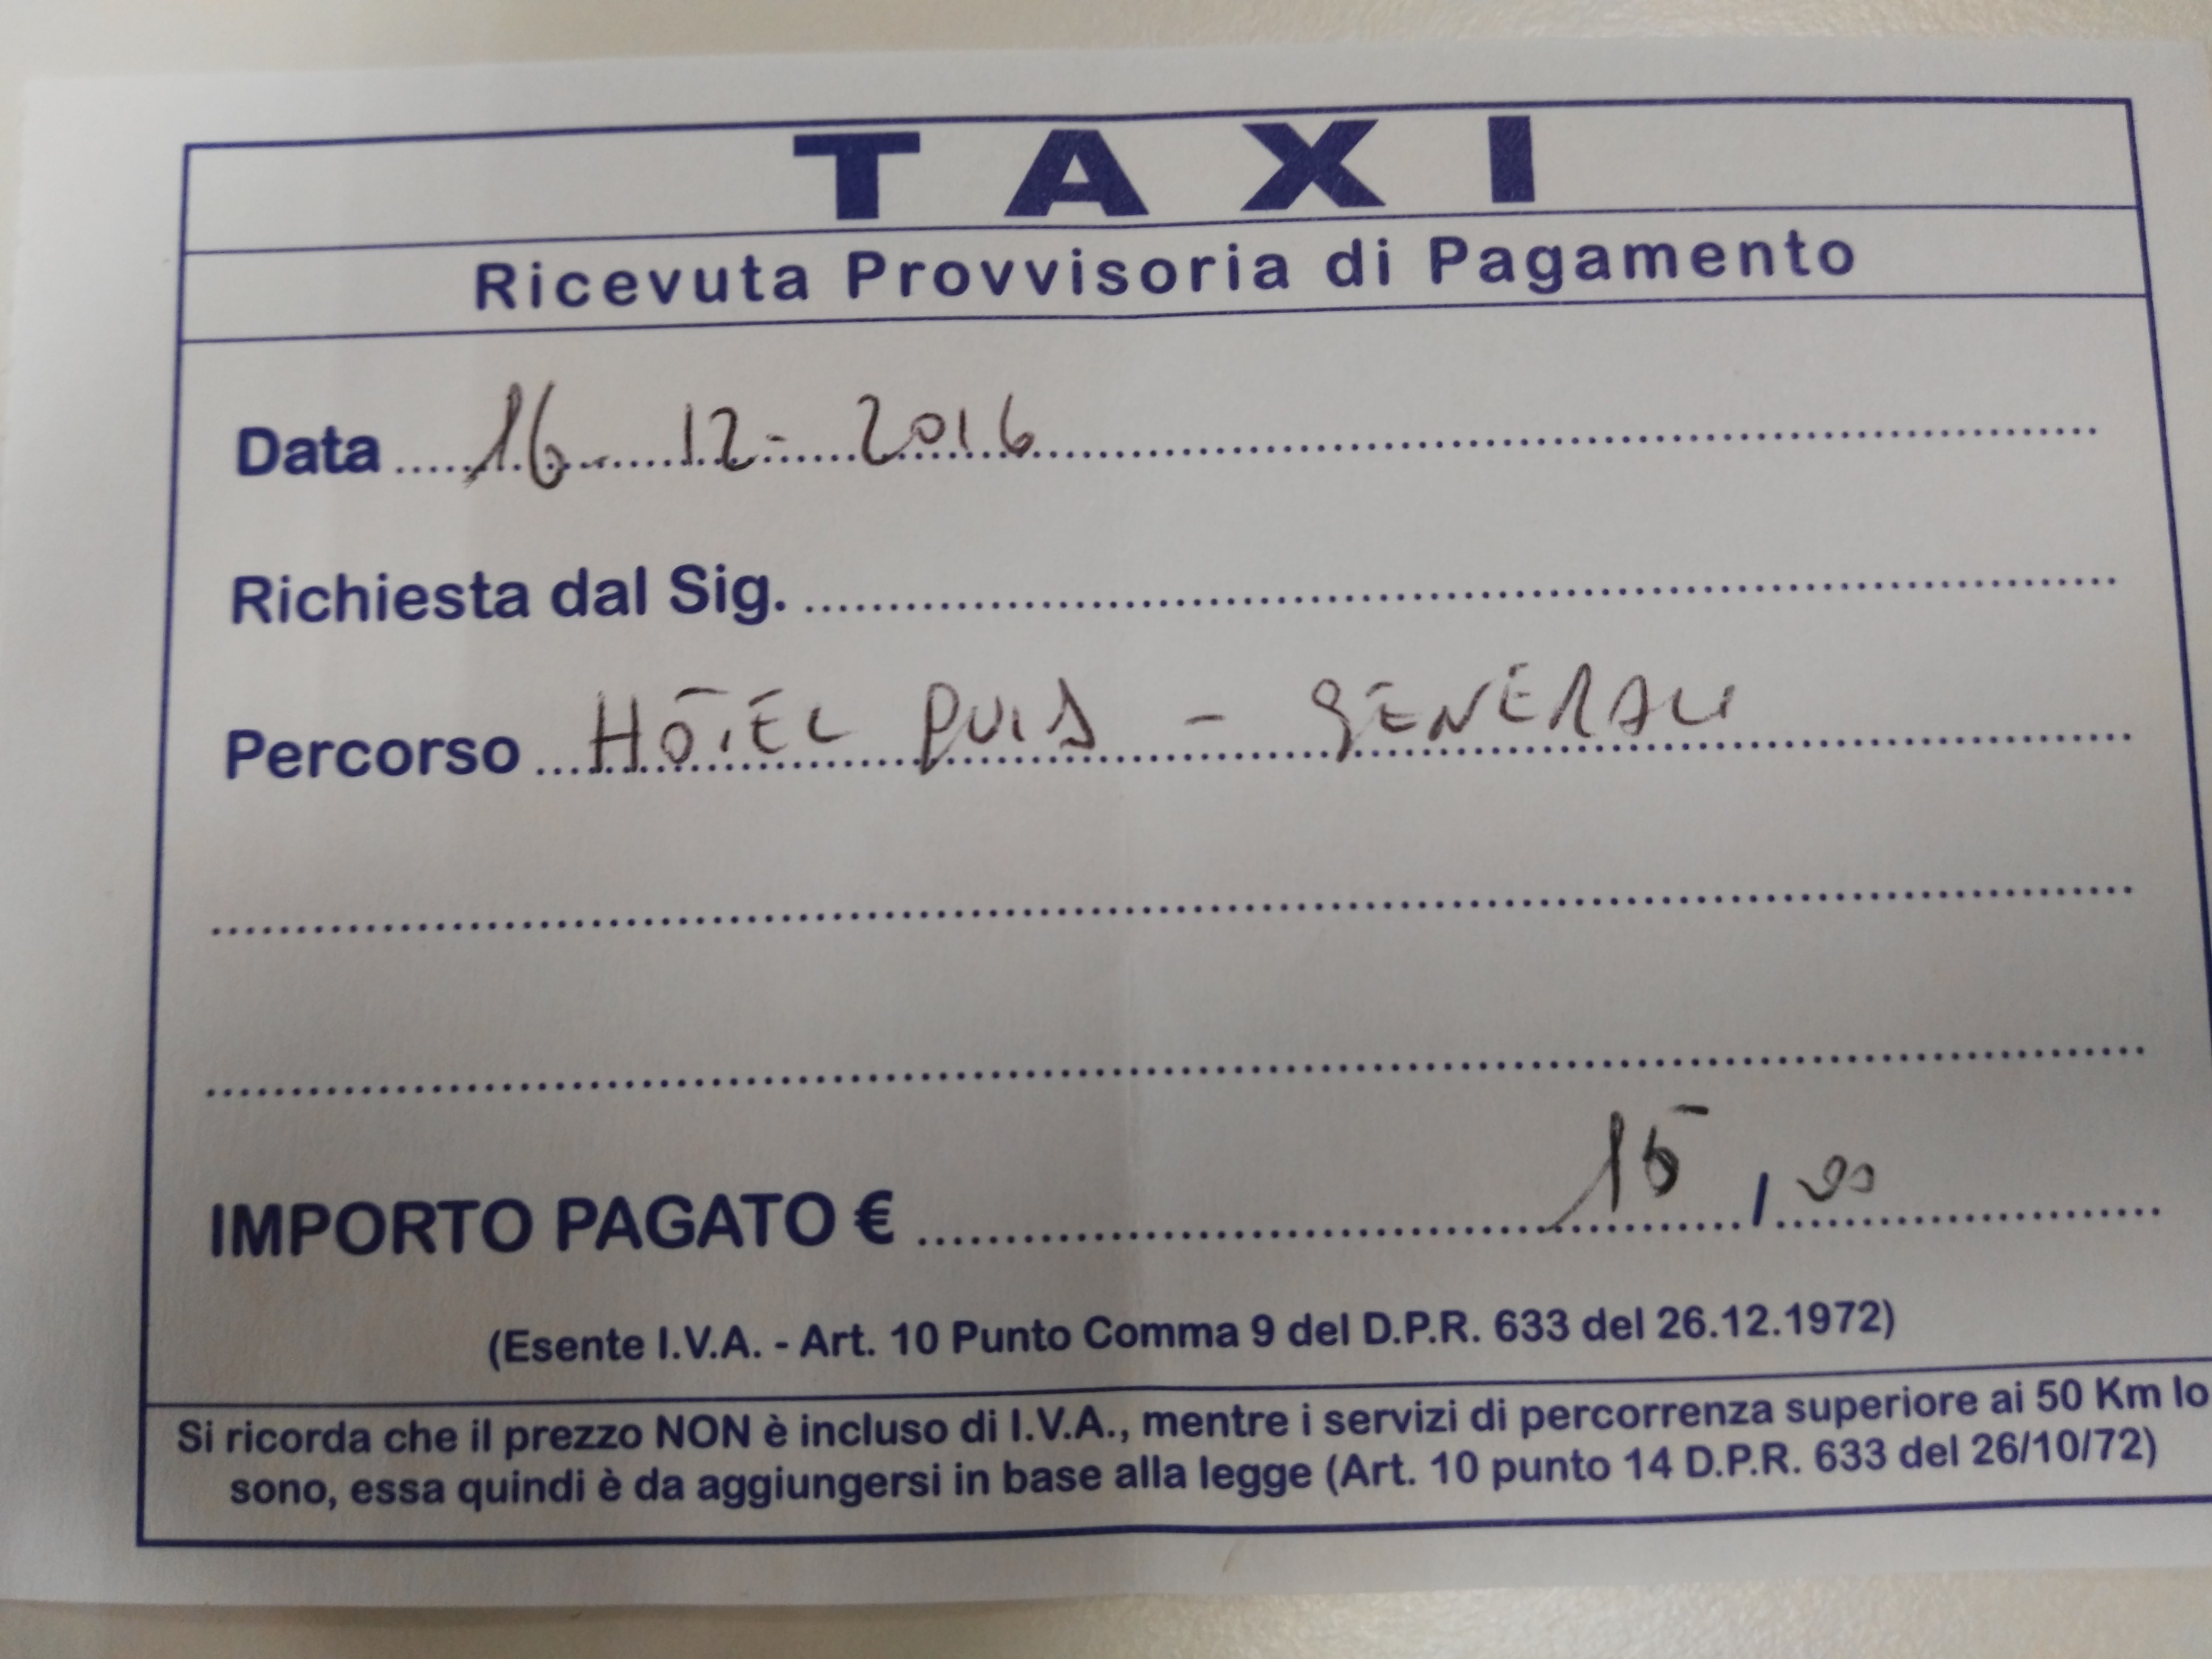 TAXI
Ricevuta Provvisoria di Pagamento
Data 16 - 12 - 2016
Richiesta dal Sig.
Percorso HOTEL - GENERALI
IMPORTO PAGATO € 15,00
(Esente I.V.A. - Art. 10 Punto Comma 9 del D.P.R. 633 del 26.12.1972)
Si ricorda che il prezzo NON è incluso di I.V.A., mentre i servizi di percorrenza superiore ai 50 Km lo
sono, essa quindi è da aggiungersi in base alla legge (Art. 10 punto 14 D.P.R. 633 del 26/10/72)